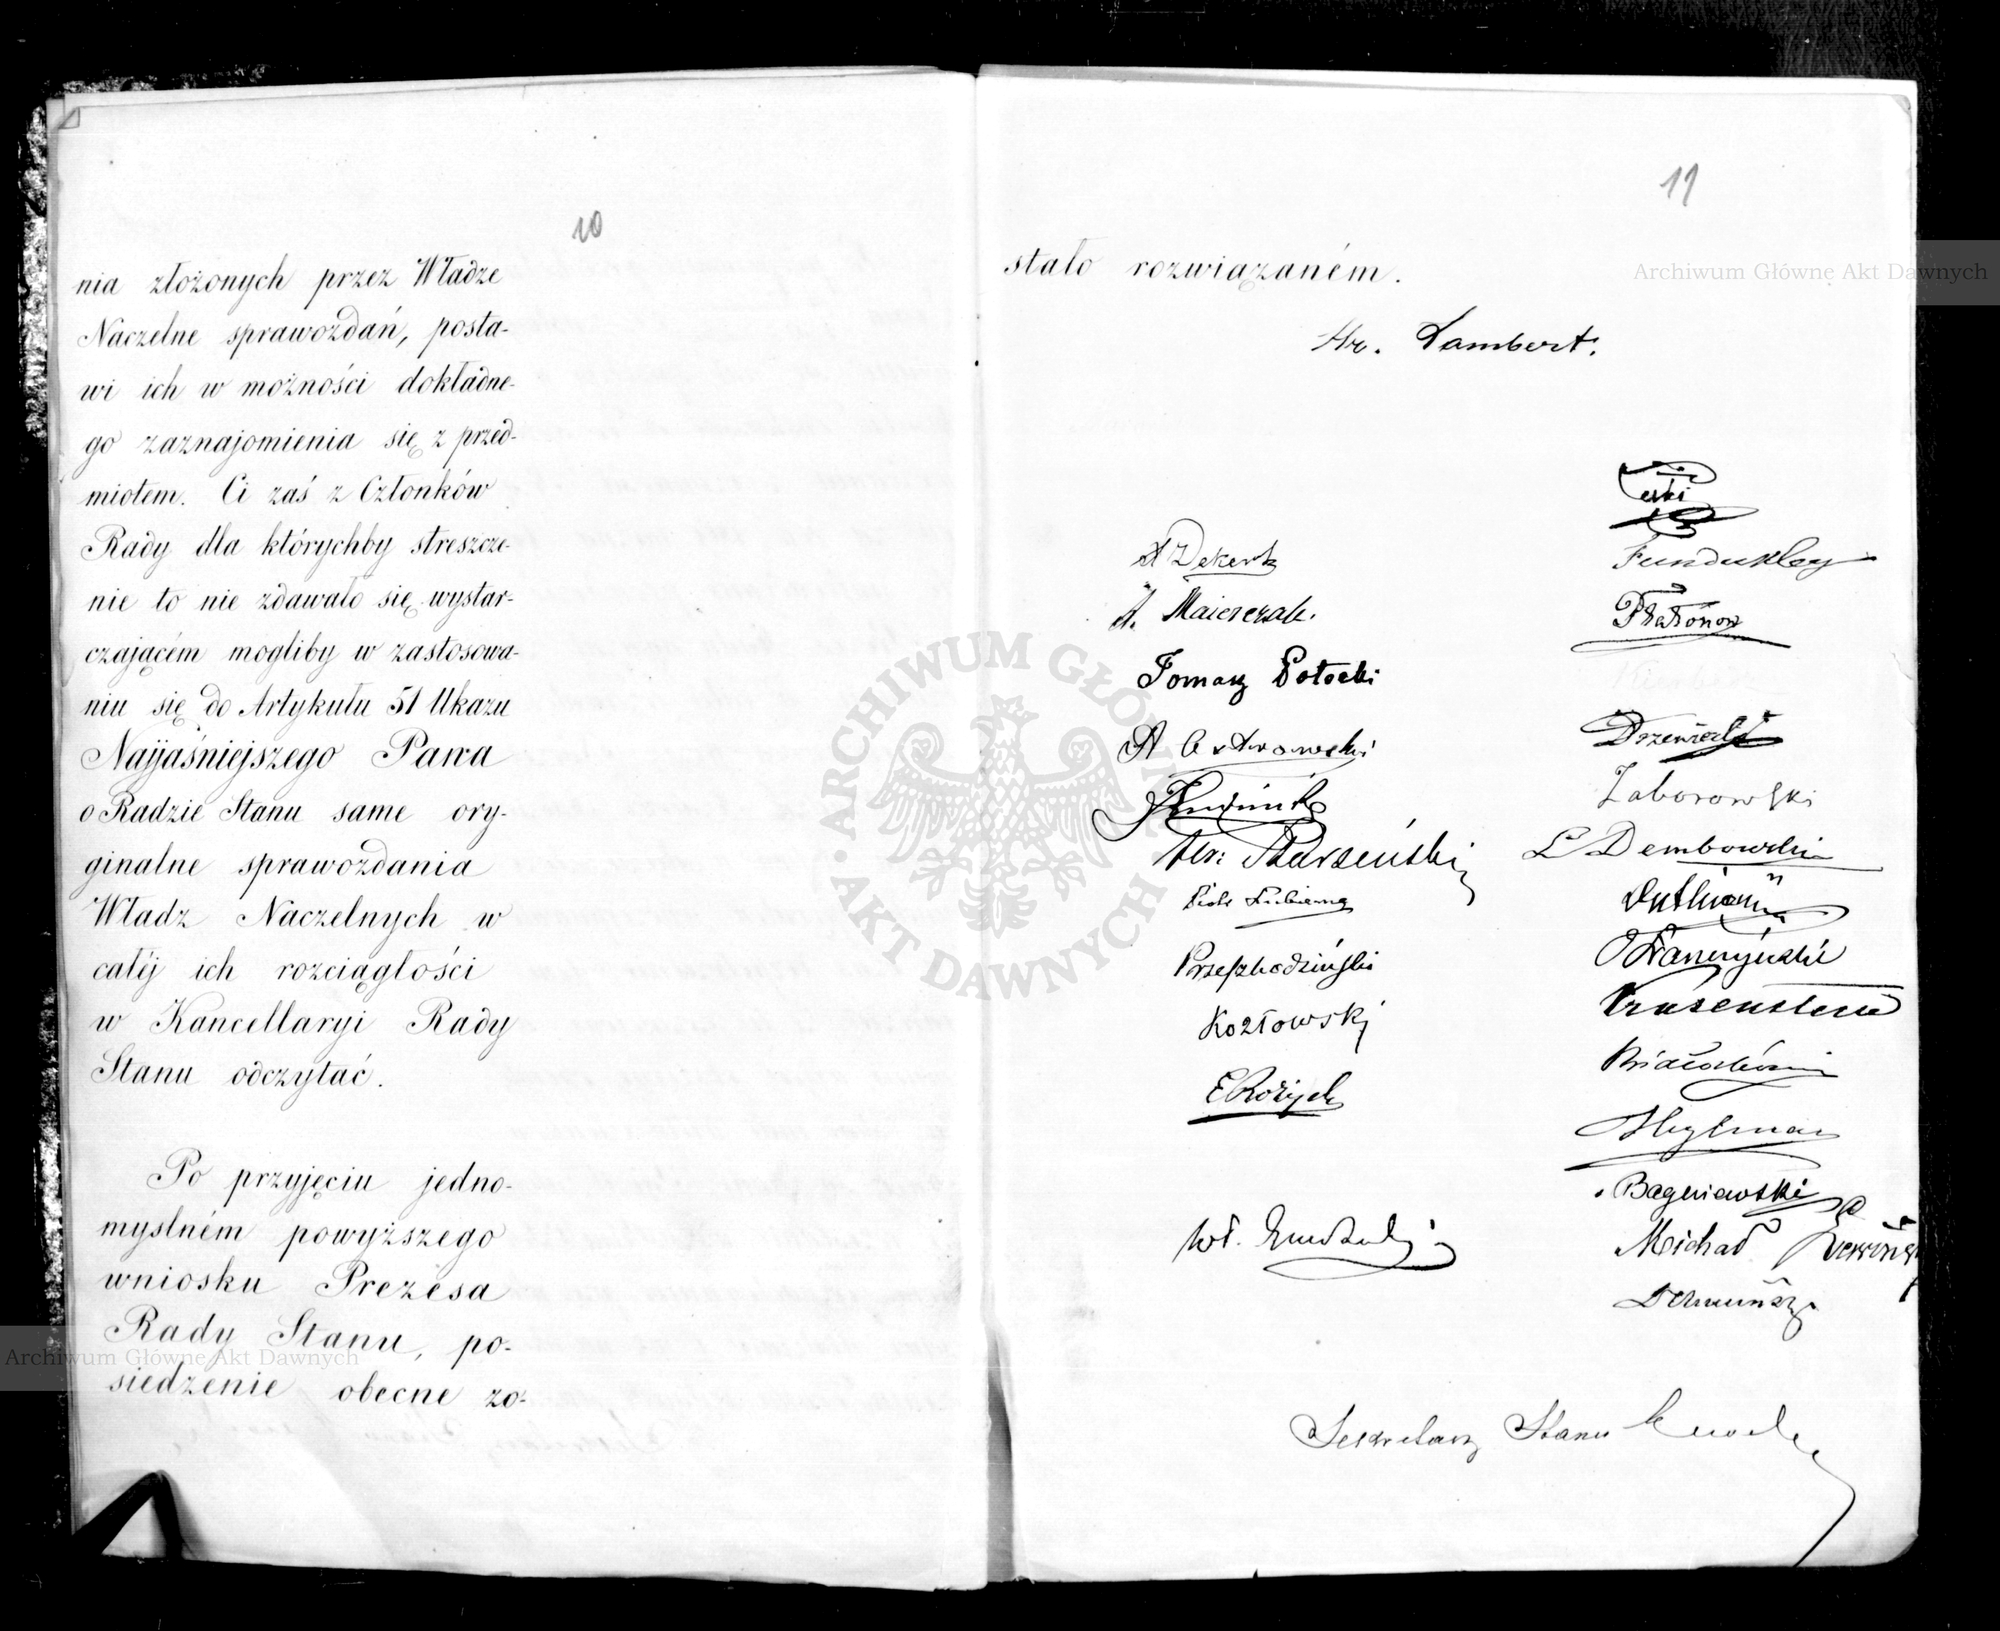 10
nia złożonych przez Władze
Naczelne sprawozdań, posta-
wi ich w możności dokładne-
go zaznajomienia się z przed-
miotem. Ci zaś z Członków
Rady dla którychby streszcze-
nie to nie zdawało się wystar-
czającém mogliby w zastosowa-
niu się do Artykułu 51 Ukazu
Najjaśniejszego Pana
o Radzie Stanu same ory-
ginalne sprawozdania
Władz Naczelnych w
całéj ich rozciągłości
w Kancellaryi Rady
Stanu odczytać.
Po przyjęciu jedno-
myslném powyższego
wniosku Prezesa
Rady Stanu, po-
siedzenie obecne zo-
11
stało rozwiązaném.
Hr. Lambert.
A Dekert
Tomasz Potocki
A Ostrowski
Hr: Starzeński
Piotr Łubieng
Przephodziński
Kozłowski
E Rożyck
Wł.
Fundukley
Płatonow
Drzewiecki
Zaborowski
L Dembowski
Kruzenstern
Białoskórs
Hylman
Bagniewski
Michał
Sekretarz Stanu
ARCHIWUM GŁÓWNE AKT DAWNYCH
Archiwum Główne Akt Dawnych
Archiwum Główne Akt Dawnych